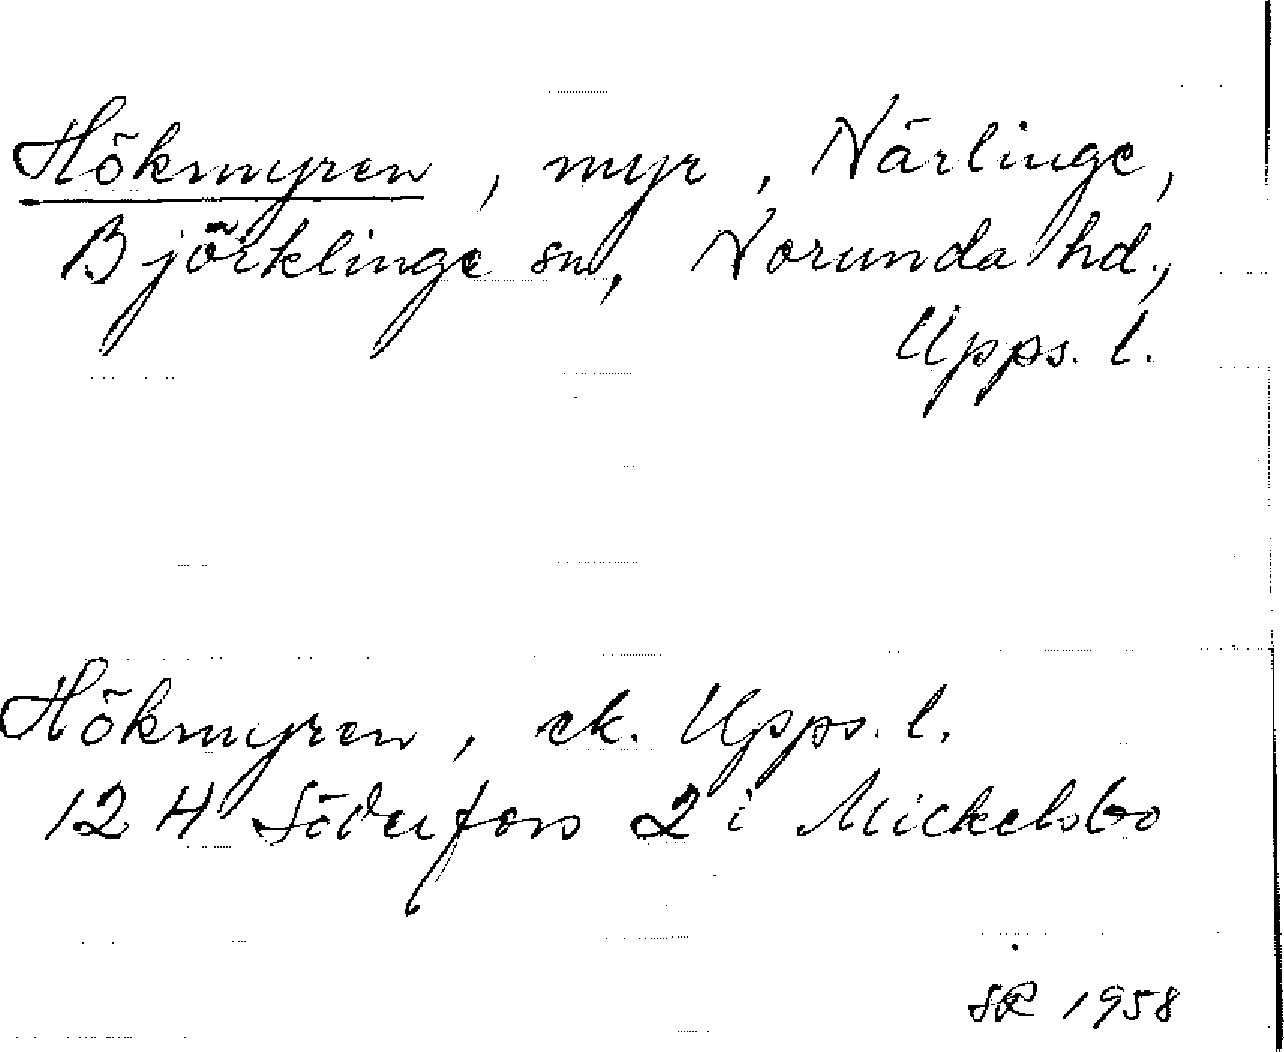 Hökmyren, myr, Närlinge,
Björklinge sn, Norunda hd.,
Upps. l.
Hökmyren, ek. Upps. l.
12 H Söderfors 2 i Mickelsbo
SR 1958